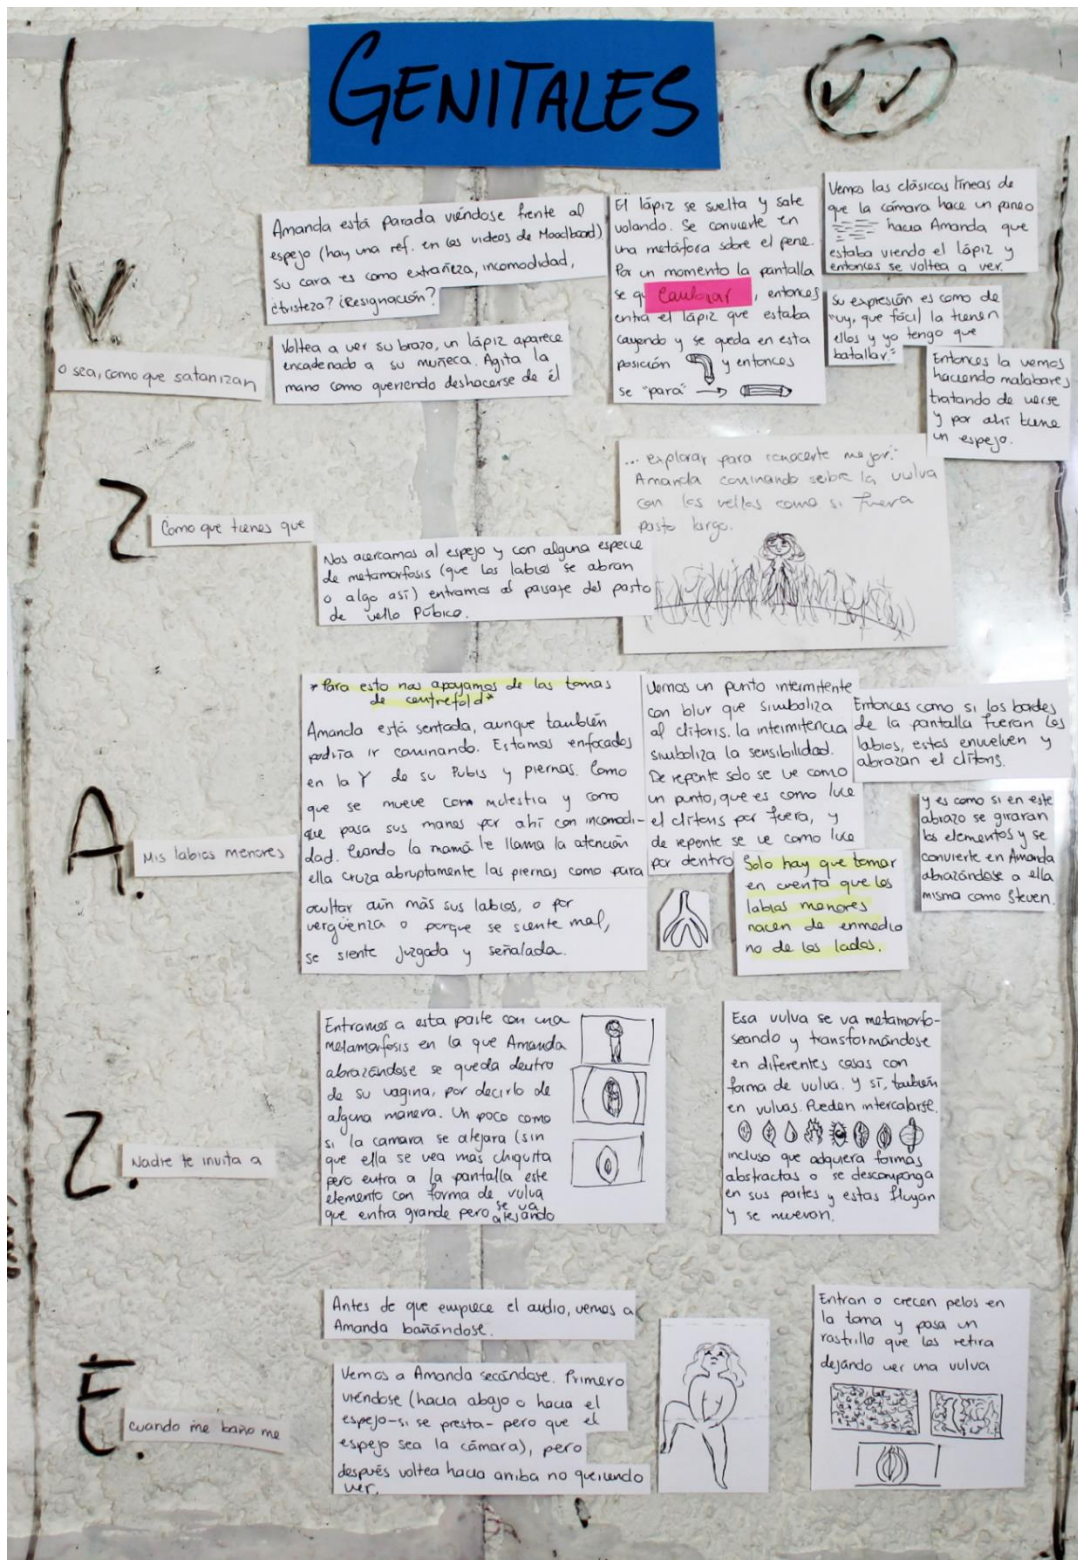 GENITALES
V
o sea, como que satanizan
Amanda está parada viéndose frente al
espejo (hay una ref. en los videos de Moodboard)
su cara es como extrañeza, incomodidad,
¿tristeza? ¿Resignación?
Voltea a ver su brazo, un lápiz aparece
encadenado a su muñeca. Agita la
mano como queriendo deshacerse de él
El lápiz se suelta y sale
volando. Se convierte en
una metáfora sobre el pene.
Por un momento la pantalla
se q
Cambiar
, entonces
entra el lápiz que estaba
cayendo y se queda en esta
posición y entonces
se "para" →
Vemos las clásicas líneas de
que la cámara hace un paneo
hacia Amanda que
estaba viendo el lápiz y
entonces se voltea a ver.
Su expresión es como de
"uy, que fácil la tienen
ellos y yo tengo que
batallar".
Entonces la vemos
haciendo malabares
tratando de verse
y por ahí tiene
un espejo.
Z
Como que tienes que
Nos acercamos al espejo y con alguna especie
de metamorfosis (que los labios se abran
o algo así) entramos al paisaje del pasto
de vello Púbico.
... explorar para conocerte mejor."
Amanda caminando sobre la vulva
con los vellos como si fuera
pasto largo.
A.
Mis labios menores
*Para esto nos apoyamos de las tomas
de centrefold*
Amanda está sentada, aunque también
podría ir caminando. Estamos enfocados
en la Y de su Pubis y piernas. Como
que se mueve con molestia y como
que pasa sus manos por ahí con incomodi-
dad. Cuando la mamá le llama la atención
ella cruza abruptamente las piernas como para
ocultar aún más sus labios, o por
vergüenza o porque se siente mal,
se siente juzgada y señalada.
Vemos un punto intermitente
con blur que simboliza
al clítoris. la intermitencia
simboliza la sensibilidad.
De repente solo se ve como
un punto, que es como luce
el clítoris por fuera, y
de repente se ve como luce
por dentro
Solo hay que tomar
en cuenta que los
labios menores
nacen de enmedio
no de los lados.
Entonces como si los bordes
de la pantalla fueran los
labios, estos envuelven y
abrazan el clítoris.
y es como si en este
abrazo se giraran
los elementos y se
convierte en Amanda
abrazándose a ella
misma como Steven.
Z.
Nadie te invita a
Entramos a esta parte con una
metamorfosis en la que Amanda
abrazándose se queda dentro
de su vagina, por decirlo de
alguna manera. Un poco como
si la camara se alejara (sin
que ella se vea más chiquita
pero entra a la pantalla este
elemento con forma de vulva
que entra grande pero se va
alejando
Esa vulva se va metamorfo-
seando y transformándose
en diferentes cosas con
forma de vulva. Y sí, también
en vulvas. Pueden intercalarse.
incluso que adquiera formas
abstractas o se descomponga
en sus partes y estas fluyan
y se muevan.
E.
cuando me baño me
Antes de que empiece el audio, vemos a
Amanda bañándose.
Vemos a Amanda secándose. Primero
viéndose (hacia abajo o hacia el
espejo-si se presta- pero que el
espejo sea la cámara), pero
después voltea hacia arriba no queriendo
ver.
Entran o crecen pelos en
la toma y pasa un
rastrillo que los retira
dejando ver una vulva